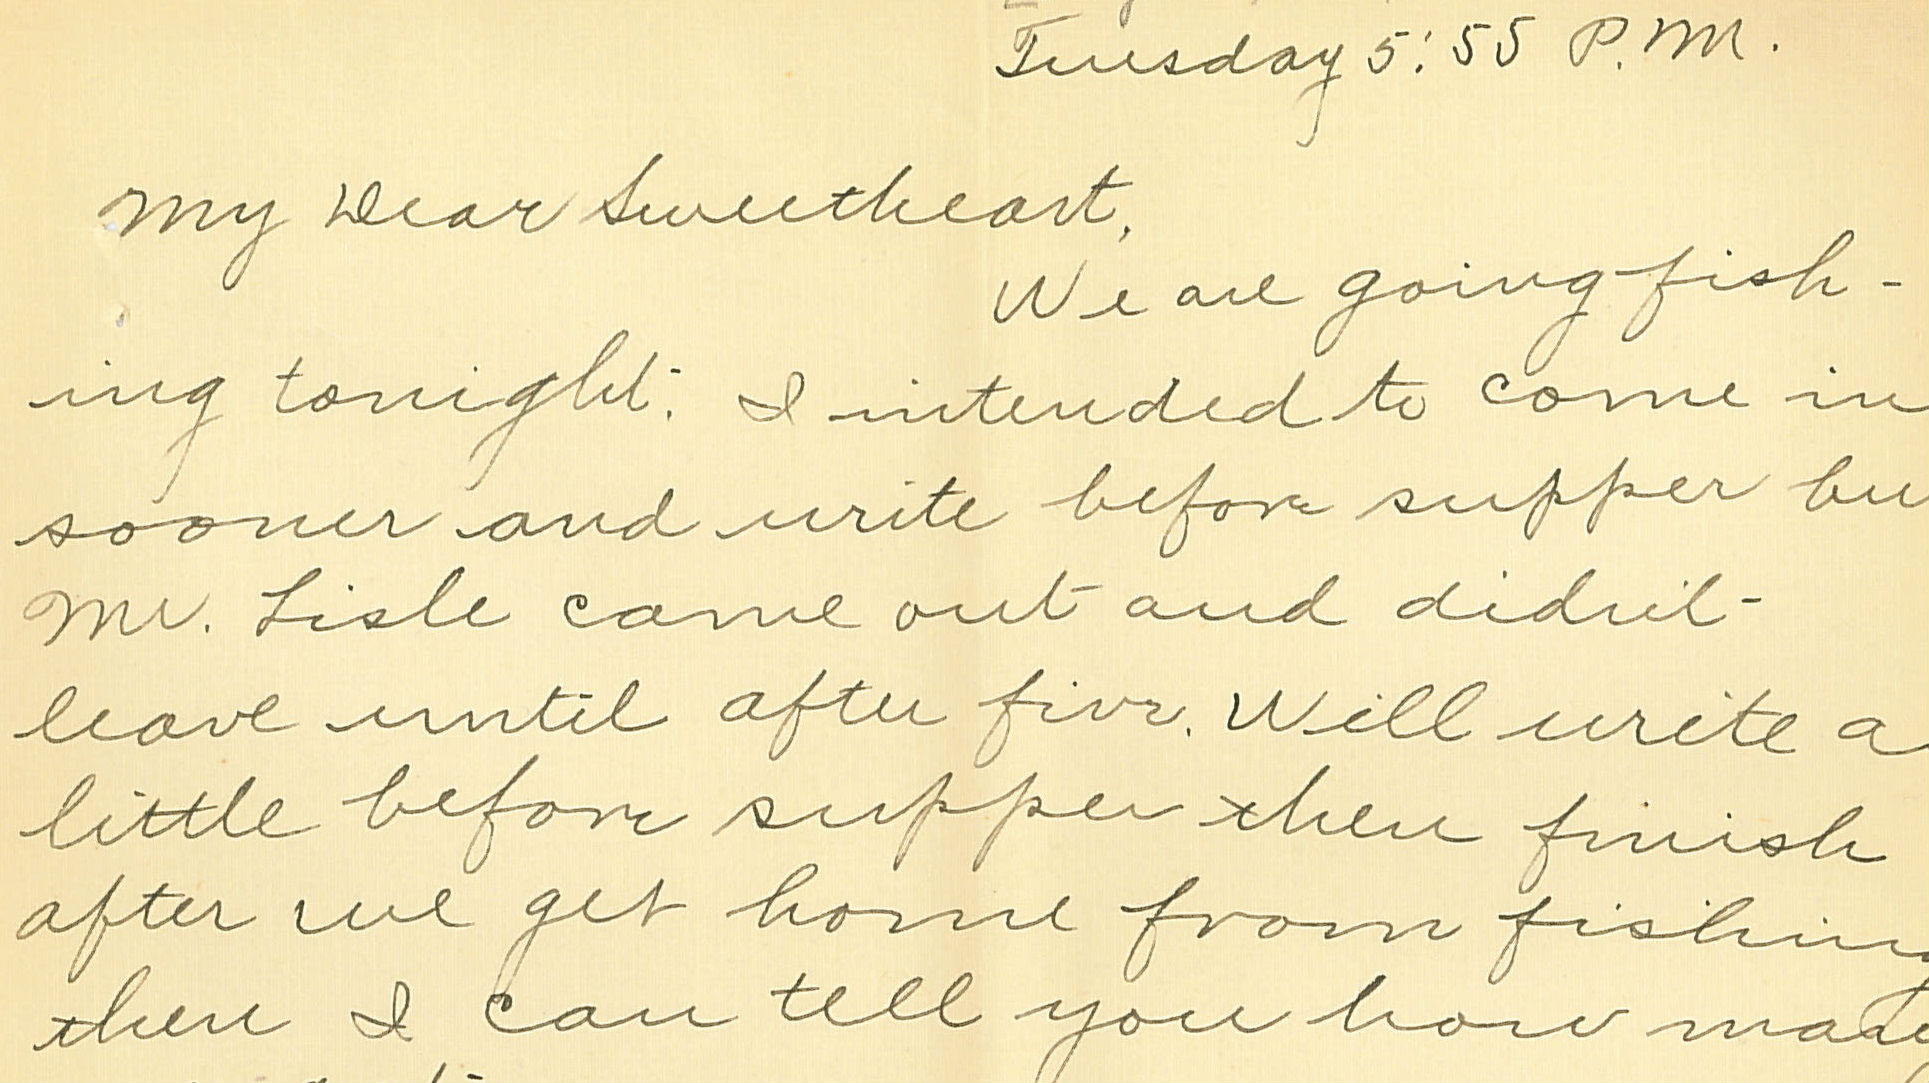 Tuesday 5:55 P.M.
My Dear Sweetheart,
We are going fish-
ing tonight. I intended to come in
sooner and write before supper bu
Mr. Lisle came out and didn't
leave until after five. Will write a
little before supper then finish
after we get home from fishing
then I can tell you how many